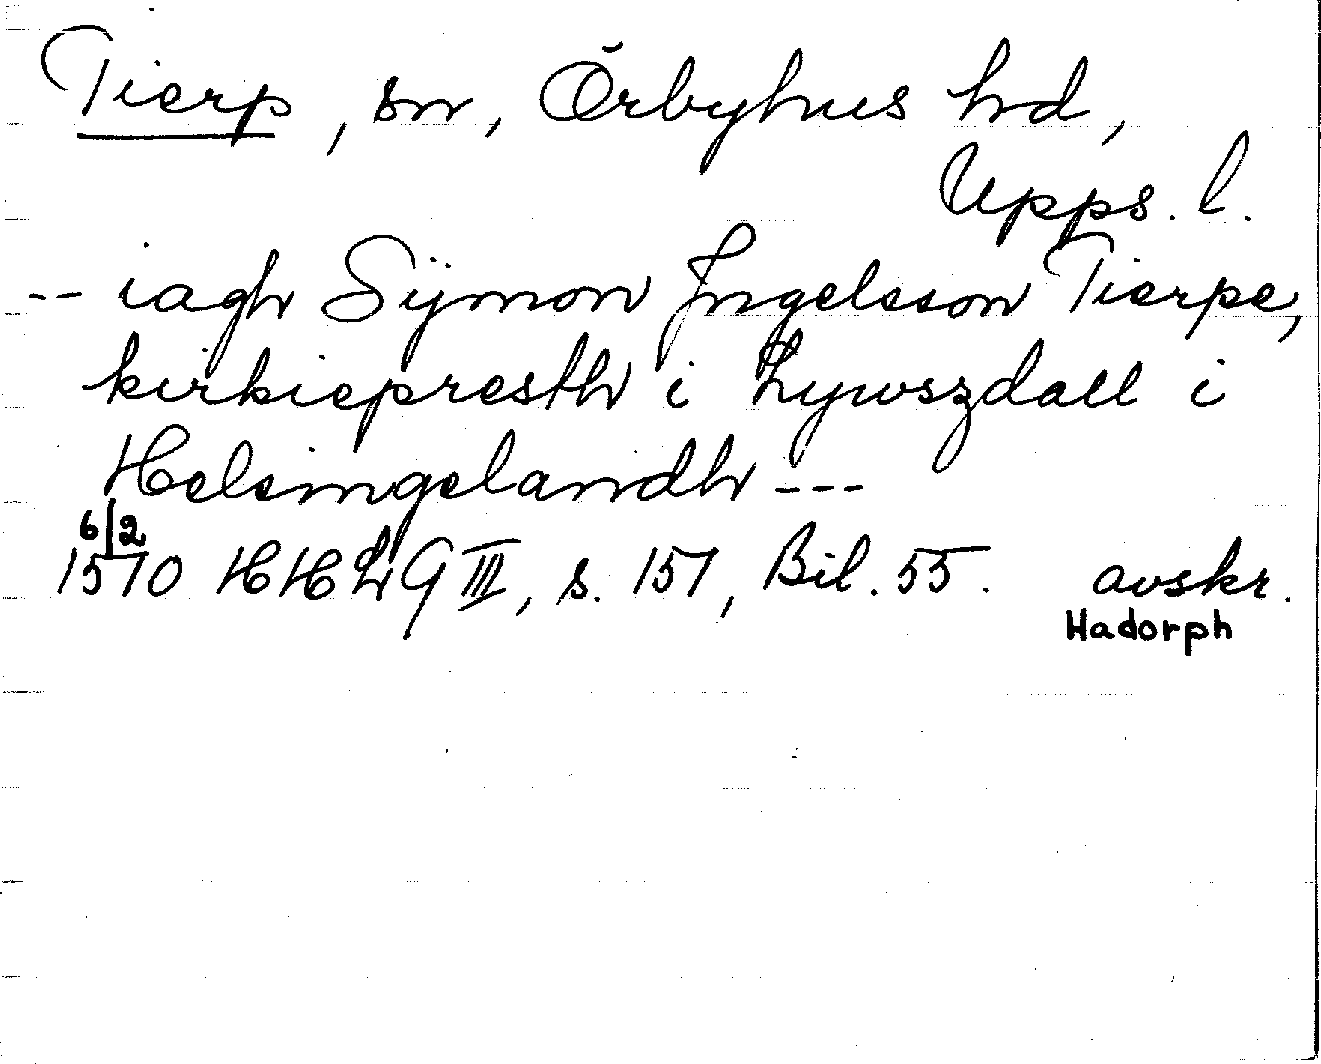 Tierp, sn, Örbyhus hd,
Upps. l.
-- iagh Sÿmon Jngelsson Tierpe,
kirkiepresth i Lywszdall i
Helsingelandh ---
6/2
1570 HHLG III, s. 157, Bil. 55. avskr.
Hadorph